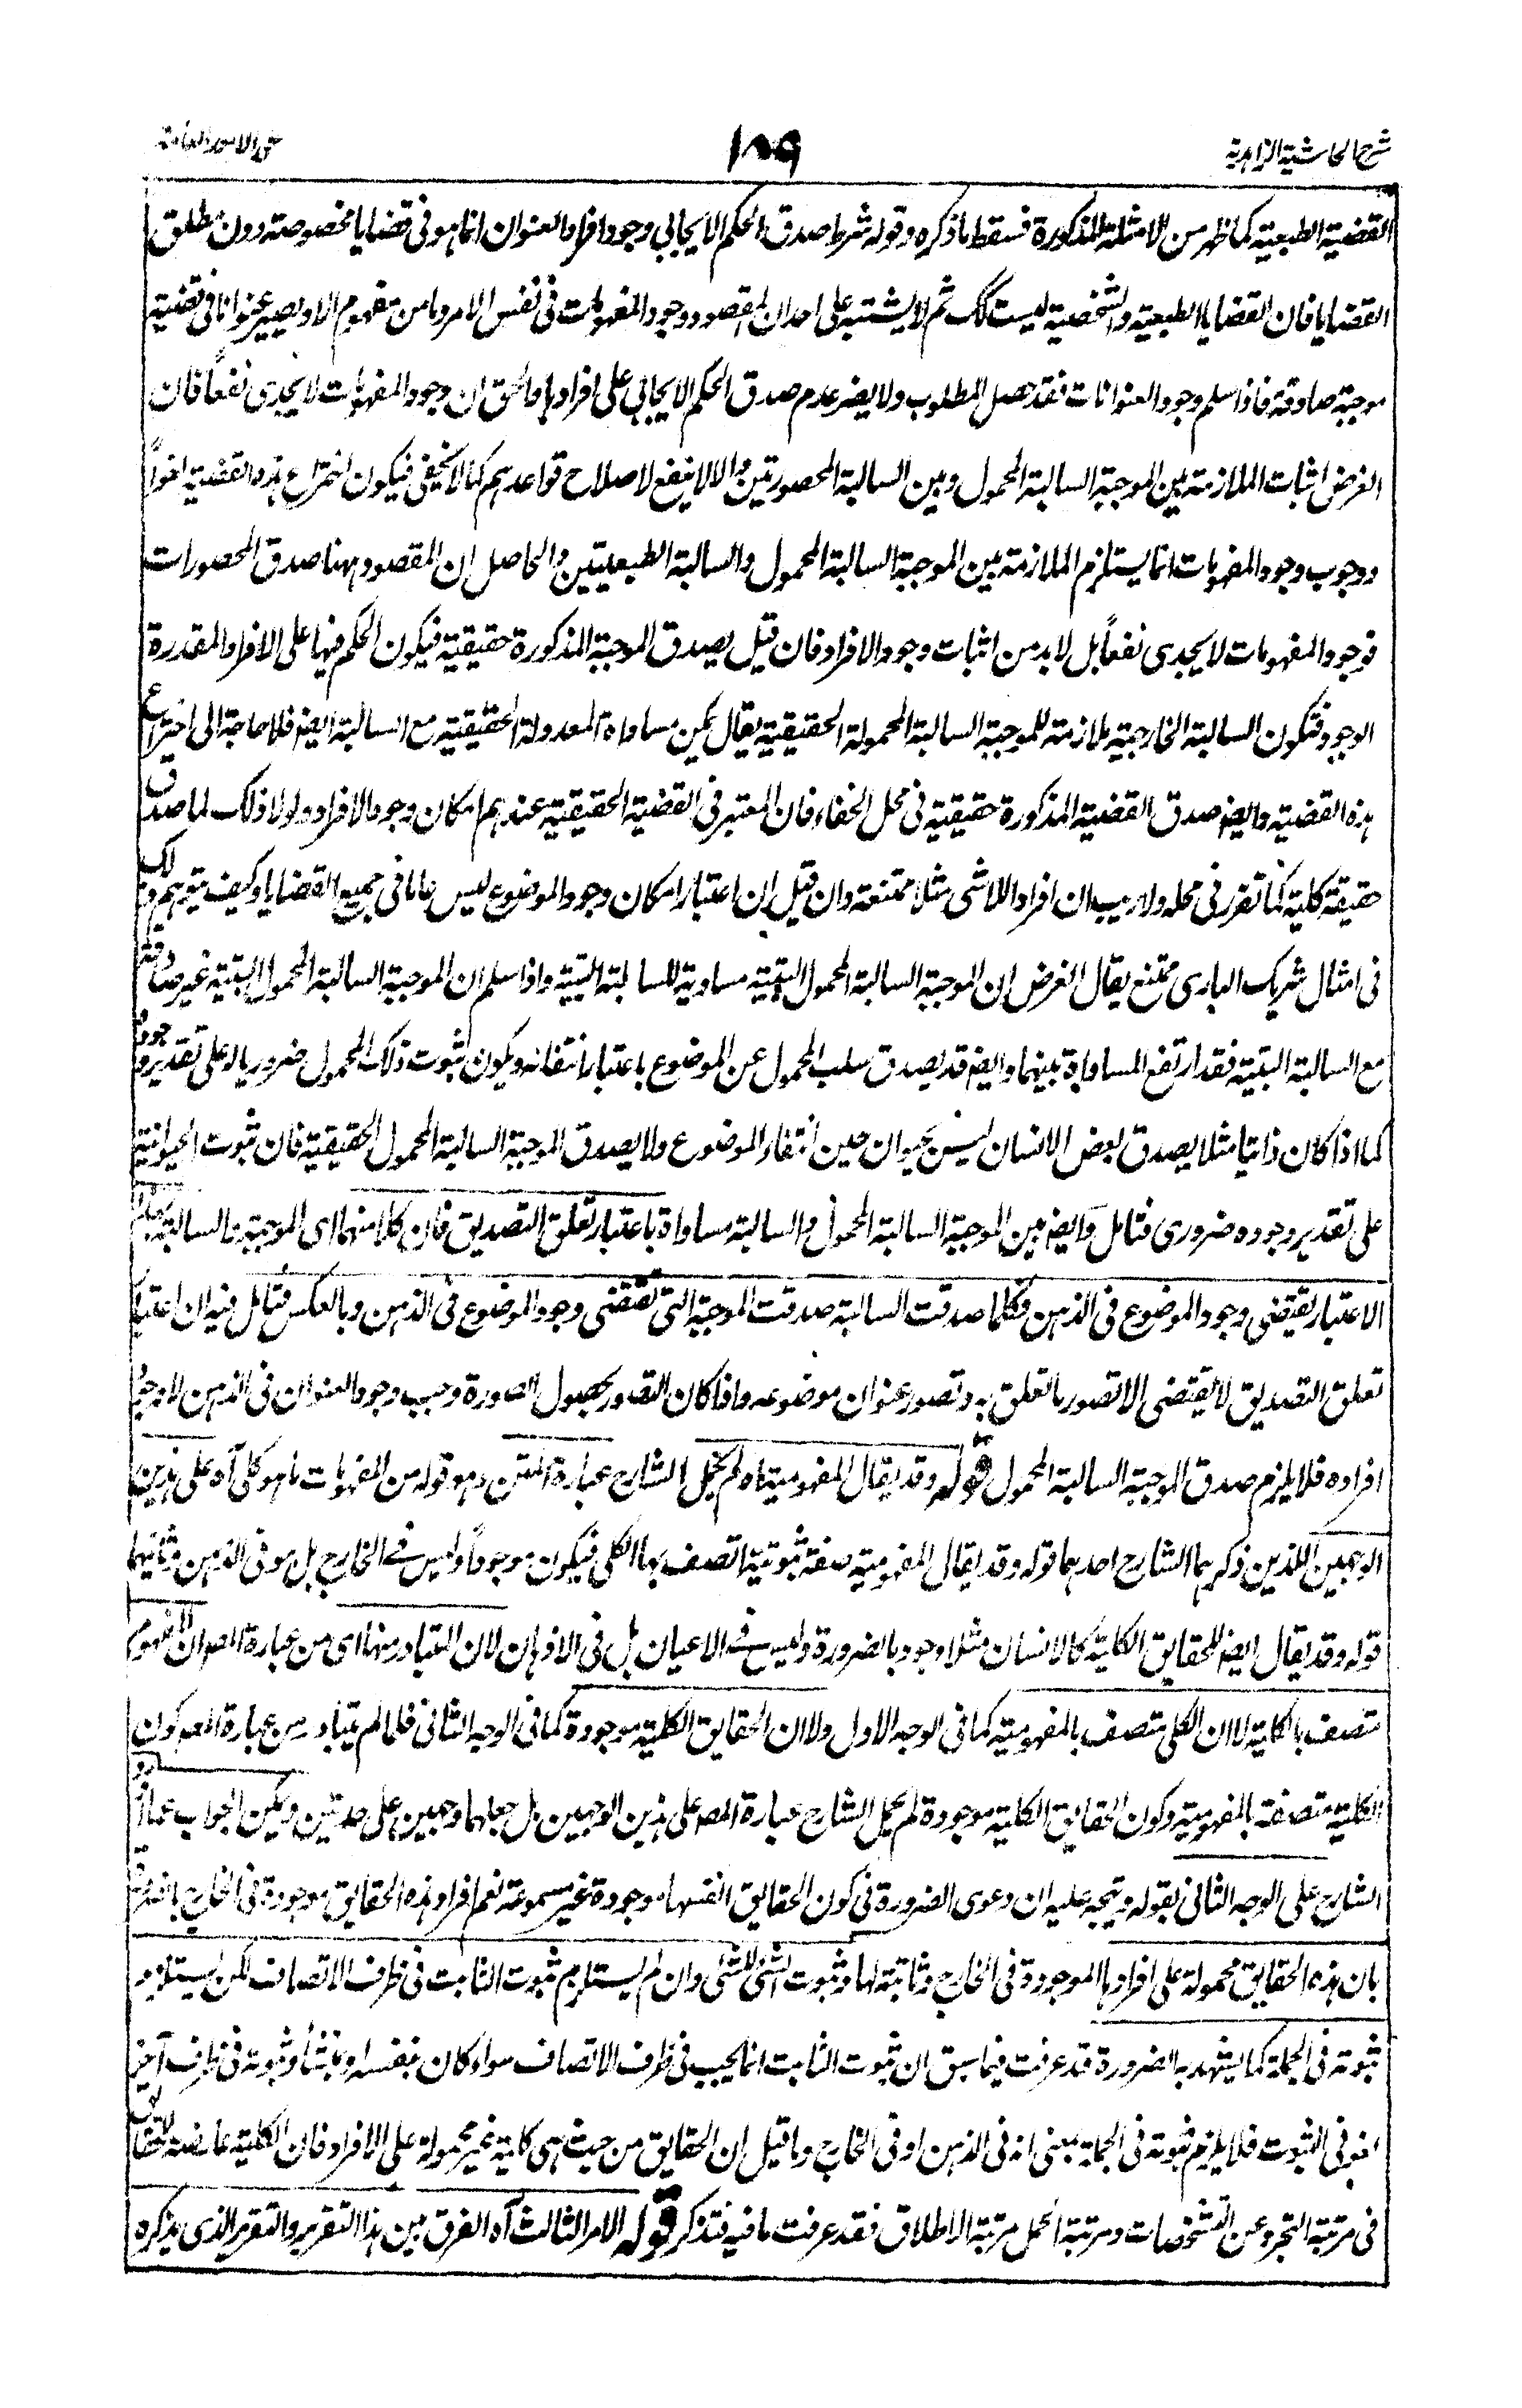 شرح الحاشية الزاهدية
١٥٩
على الامور العامة
القضية الطبعية كما ظهر من الامثلة المذكورة فسقط ما ذكره وقوله شرط صدق الحكم الايجابي وجود افراد العنوان انما هو في قضايا مخصوصة دون مطلق
القضايا فان القضايا الطبعية والشخصية ليست كك ثم لا يشتبه على احد ان المقصود وجود المفهومات في نفس الامر وما من مفهوم الا ويصير عنوانا في قضية
موجبة صادقة فاذا سلم وجود العنوانات فقد حصل المطلوب ولا يضر عدم صدق الحكم الايجابي على افرادها والحق ان وجود المفهومات لا يجدي نفعاً فان
الغرض اثبات الملازمة بين الموجبة السالبة المحمول وبين السالبة المحصورتين والا لا ينفع لاصلاح قواعدهم كما لا يخفى فيكون اختراع هذه القضية لغواً
ووجوب وجود المفهومات انما يستلزم الملازمة بين الموجبة السالبة المحمول والسالبة الطبعيتين والحاصل ان المقصود ههنا صدق المحصورات
فوجود المفهومات لا يجدي نفعاً بل لا بد من اثبات وجود الافراد فان قيل يصدق الموجبة المذكورة حقيقية فيكون الحكم فيها على الافراد المقدرة
الوجود فتكون السالبة الخارجية ملازمة للموجبة السالبة المحمولة الحقيقية يقال يمكن مساواة المعدولة الحقيقية مع السالبة ايضم فلا حاجة الى اختراع
هذه القضية وايضم صدق القضية المذكورة حقيقية في محل الخفاء فان المعتبر في القضية الحقيقية عندهم امكان وجود الافراد ولولا ذلك لما صدق
حقيقة كلية كما تقرر في محله ولا ريب ان افراد اللاشى مثلا ممتنعة وان قيل ان اعتبار امكان وجود الموضوع ليس عاما في جميع القضايا وكيف يتوهم ذلك
في امثال شريك الباري ممتنع يقال الغرض ان الموجبة السالبة المحمول البتية مساوية للسالبة البتية واذا سلم ان الموجبة السالبة المحمول البتية غير صادقة
مع السالبة البتية فقد ارتفع المساواة بينهما وايضم قد يصدق سلب المحمول عن الموضوع باعتبار انتفائه ويكون ثبوت ذلك المحمول ضروريا له على تقدير وجوده
كما اذا كان ذاتيا مثلا يصدق بعض الانسان ليس بحيوان حين انتفاء الموضوع ولا يصدق الموجبة السالبة المحمول الحقيقية فان ثبوت الحيوانية
على تقدير وجوده ضروري فتامل وايضم بين الموجبة السالبة المحمول والسالبة مساواة باعتبار تعلق التصديق فان كلا منهما اى الموجبة والسالبة بهذا
الاعتبار يقتضي وجود الموضوع في الذهن فكلما صدقت السالبة صدقت الموجبة التي تقتضي وجود الموضوع في الذهن وبالعكس فتامل فيه ان اعتبار
تعلق التصديق لا يقتضي الا تصور ما تعلق به وتصور عنوان موضوعه واذا كان التصور بحصول الصورة وجب وجود العنوان في الذهن لا وجود
افراده فلا يلزم صدق الموجبة السالبة المحمول قوله وقد يقال المفهومية اه لم يحمل الشارح عبارة المتن وهو قوله من المفهومات ما هو كلي آه على هذين
الوجهين اللذين ذكرهما الشارح احدهما قوله وقد يقال المفهومية صفة ثبوتية اتصف بها الكلي فيكون موجوداً وليس في الخارج بل هو في الذهن وثانيهما
قوله وقد يقال ايضم للحقايق الكلية كالانسان مثلا وجود بالضرورة وليس في الاعيان بل في الاذهان لان المتبادر منها اى من عبارة المص ان المفهوم
متصف بالكلية لا ان الكلي متصف بالمفهومية كما في الوجه الاول ولا ان الحقايق الكلية موجودة كما في الوجه الثاني فلما لم يتبادر من عبارة المص كون
الكلية متصفة بالمفهومية وكون الحقايق الكلية موجودة لم يحمل الشارح عبارة المص على هذين الوجهين بل جعلهما وجهين على حدتين ويمكن الجواب عما اورد
الشارح على الوجه الثاني بقوله ويتجه عليه ان دعوى الضرورة في كون الحقايق انفسها موجودة غير مسموعة نعم افراد هذه الحقايق موجودة في الخارج بالضرورة
بان هذه الحقايق محمولة على افرادها الموجودة في الخارج وثابتة لها وثبوت الشئ للشئ وان لم يستلزم ثبوت الثابت في ظرف الاتصاف لكن يستلزم
ثبوته في الجملة كما يشهد به الضرورة قد عرفت فيما سبق ان ثبوت الثابت انما يجب في ظرف الاتصاف سواء كان بنفسه او بمنشأ وثبوته في ظرف آخر
لغو في الثبوت فلا يلزم ثبوته في الجملة بمعنى انه في الذهن او في الخارج وما قيل ان الحقايق من حيث هي كلية غير محمولة على الافراد فان الكلية عارضة للحقائق
في مرتبة التجرد عن التشخصات ومرتبة الحمل مرتبة الاطلاق فقد عرفت ما فيه فتذكر قوله الامر الثالث آه الفرق بين هذا التقرير والتقرير الذي يذكره